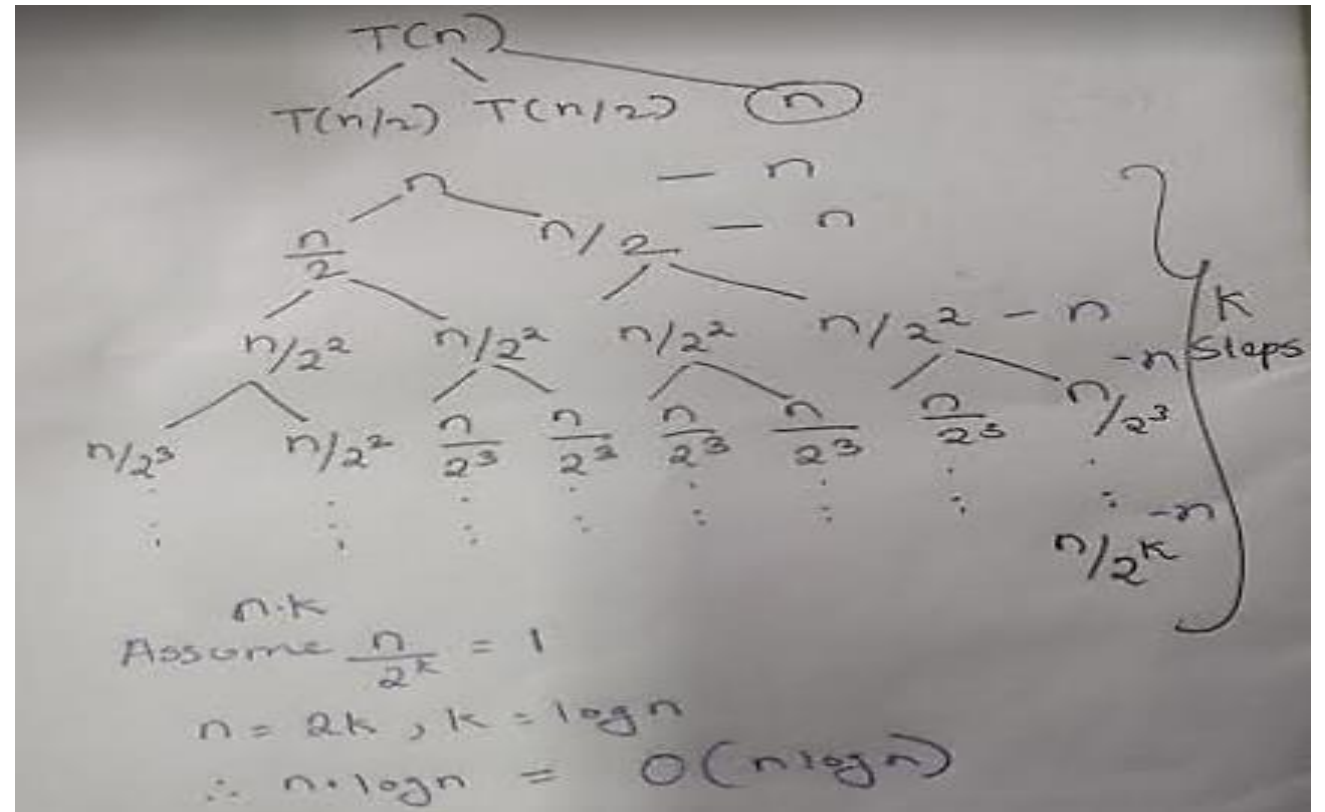 T(n)
T(n/2) T(n/2) n
n — n
n/2 n/2 — n
n/2² n/2² n/2² n/2² - n
K
Steps
n/2³ n/2² n/2³ n/2³ n/2³ n/2³ n/2³ n/2³ -n
n/2ᵏ -n
n.k
Assume n/2ᵏ = 1
n = 2k, k = logn
∴ n.logn = O(nlogn)